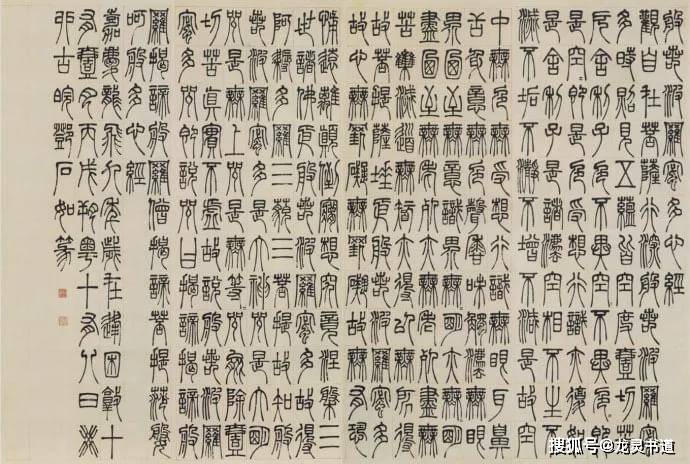 般若波羅蜜多心經
觀自在菩薩行深般若波羅蜜
多時照見五蘊皆空度壹切苦
厄舍利子色不異空空不異色色即
是空空即是色受想行識亦復如
是舍利子是諸法空相不生不
滅不垢不淨不增不減是故空
中無色無受想行識無眼耳鼻
舌身意無色聲香味觸法無眼
界乃至無意識界無無明亦無無明
盡乃至無老死亦無老死盡無
苦集滅道無智亦無得以無所得
故菩提薩埵依般若波羅蜜多
故心無罣礙無罣礙故無有恐
怖遠離顛倒夢想究竟涅槃三
世諸佛依般若波羅蜜多故得
阿耨多羅三藐三菩提故知般
若波羅蜜多是大神咒是大明
咒是無上咒是無等等咒能除壹
切苦真實不虛故說般若波羅
蜜多咒即說咒曰揭諦揭諦般
羅揭諦般羅僧揭諦菩提薩婆
呵般若多心經
嘉慶龍飛九年歲在逢困敦十
有壹月丙戌朔粵十有八日癸
卯古皖鄧石如篆
搜狐号@龙灵书道